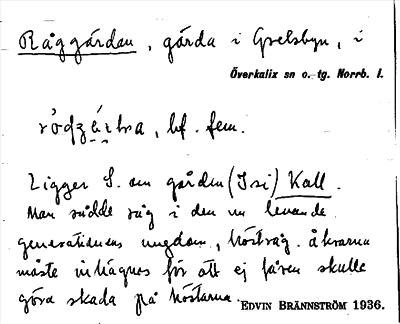 Råggärdan, gärda i Grelsbyn, i
Överkalix sn o. tg. Norrb. l.
bf. fem.
Ligger S. om gården (Isi) Kall.
Man sådde råg i den nu levande
generationens ungdom, höstråg. Åkrarna
måste inhägnas för att ej fåren skulle
göra skada på höstarna. EDVIN BRÄNNSTRÖM 1936.